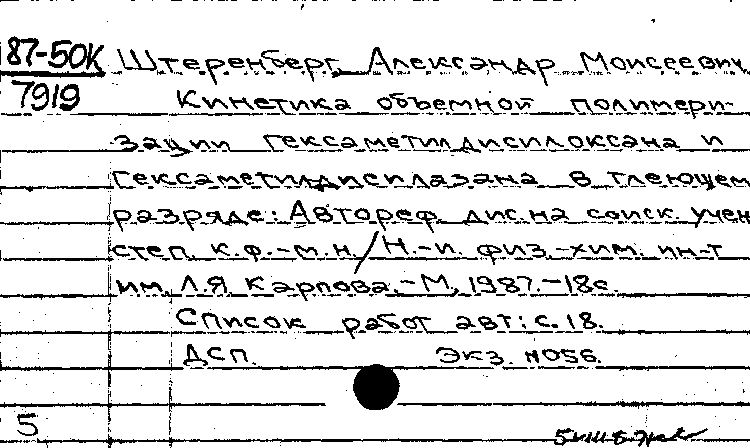 87-50К Штеренберг, Александр Моисеевич
7919 Кинетика объемной полимери-
зации гексаметилдисилоксана и
гексаметилдисилазана в тлеющем
разряде: Автореф. дис. на соиск. учен
степ. к.ф.-м.н./Н.-и. физ.-хим. ин-т
им. Л.Я. Карпова.-М., 1987.-18с.
Список работ авт.: с.18.
ДСП. Экз. №056.
5